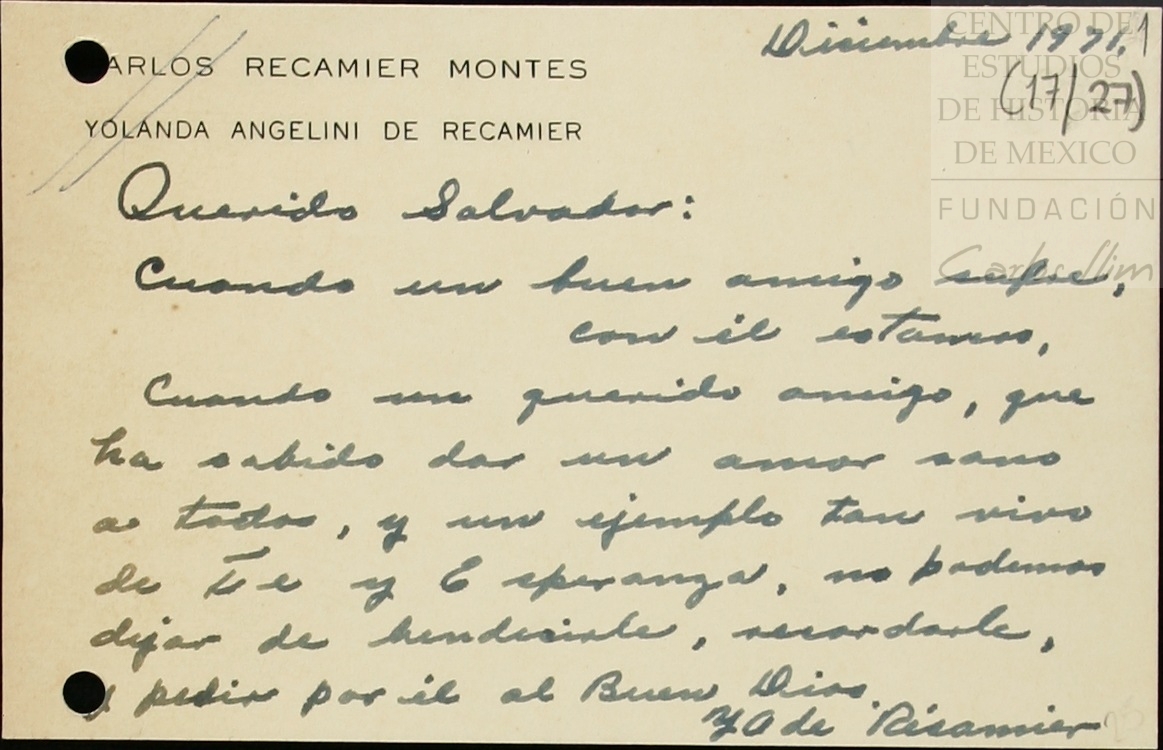 Diciembre 1971. 1
(17/27)
CENTRO DE
ESTUDIOS
DE HISTORIA
DE MEXICO
FUNDACIÓN
Carlos Slim
CARLOS RECAMIER MONTES
YOLANDA ANGELINI DE RECAMIER
Querido Salvador:
Cuando un buen amigo sufre,
con él estamos,
Cuando un querido amigo, que
ha sabido dar un amor sano
a todos, y un ejemplo tan vivo
de Fe y Esperanza, no podemos
dejar de bendecirle, recordarle,
y pedir por él al Buen Dios.
YA de Récamier